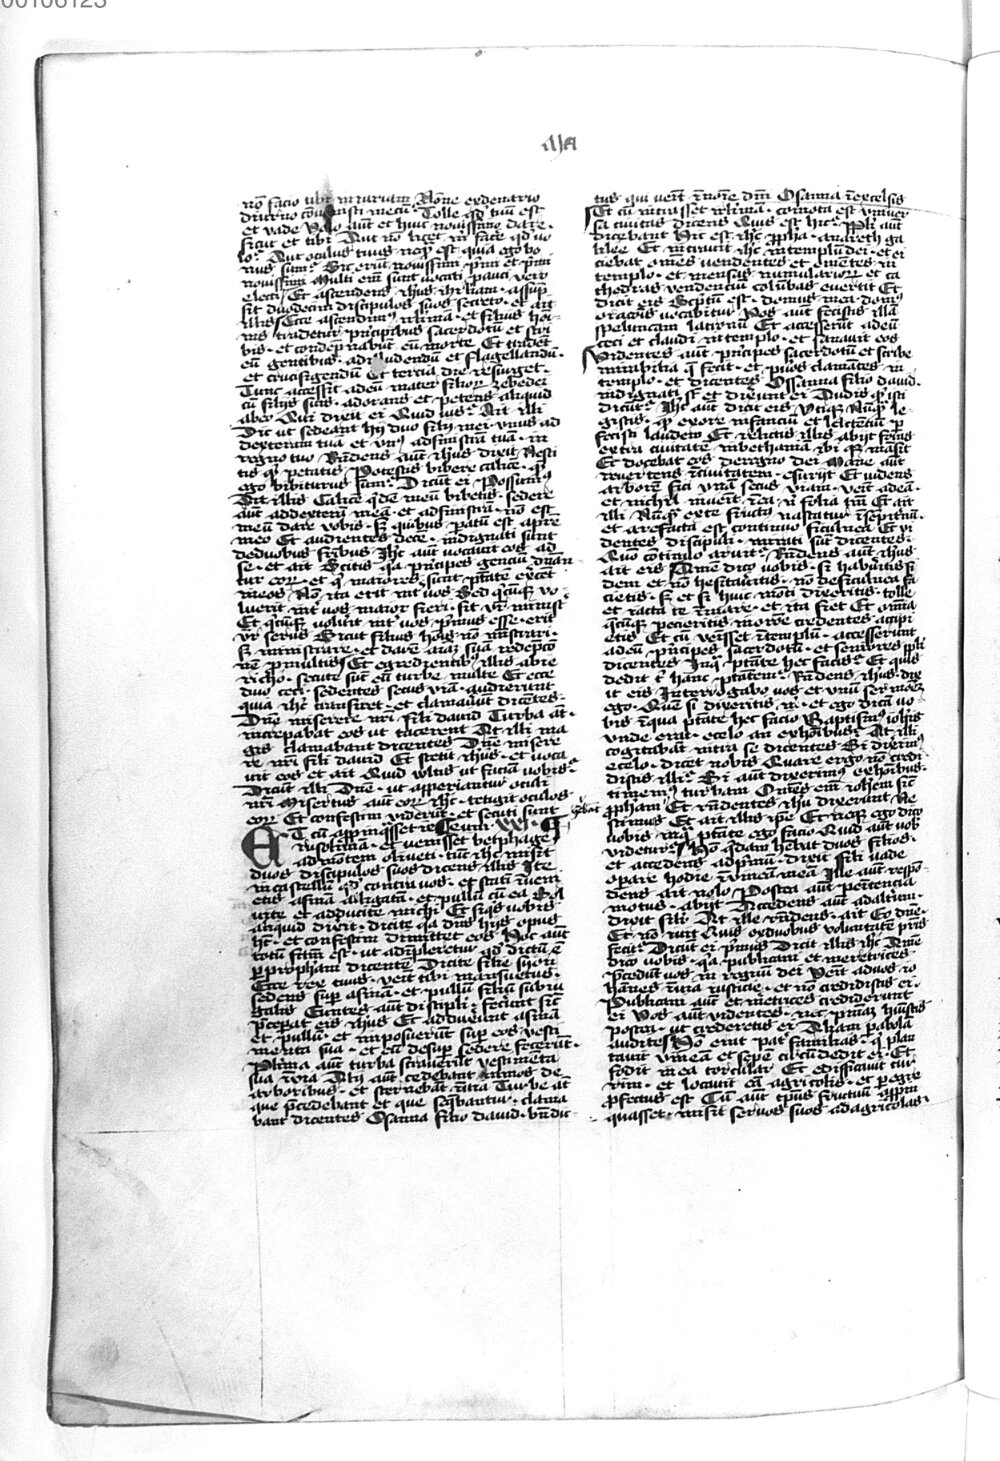 00106123
Ma
nō facio tibi iniuriam Nōne ex denario
diurno cōuenisti mecū· Tolle qd tuū est
et vade Volo aūt et huic nouissimo dare·
sicut et tibi Aut nō licet m̄ face qd vo
lo· Aut oculus tuus neqȝ est quia ego bo
nus sum· Sic erūt nouissimi pmi et pmi
nouissimi Multi em̄ sunt vocati pauci vero
electi Et ascendens ihus ihrlīam· assūp
sit duodecim discipulos suos secreto· et ait
illis Ecce ascendimꝰ irlimā· et filius hoi
nis tradetur principibus sacerdotū et scri
bis· et condēpnabūt eū morte Et tradēt
eū gentibus· ad illudendū et flagellandū·
et crucifigendū Et tercia die resurget·
Tunc accessit ad eū mater filioꝝ zebedei
cū filijs suis· adorans et petens aliquid
ab eo Qui dixit ei Quid vis· Ait illi
Dic ut sedeant hij duo filij mei vnus ad
dexteram tuā et vnꝰ ad sinistrū tuā· in
regno tuo Rn̄dens aūt ihus dixit Nesci
tis qȝ petatis Potestis bibere calicē· qȝ
ego bibiturus sum· Dicūt ei Possumꝰ
Dit illis Calicē qdē meū bibetis· sedere
aūt ad dexterū meā· et ad sinistrā· nō est
meū dare vobis· sȝ quibus patū est a pre
meo Et audientes decē· indignati sunt
de duobus frībus Ihc aūt vocauit eos ad
se· et ait Scitis qa principes genciū dnān
tur eoꝝ· et q maiores sūnt ptāte exēcēt
in eos Nō ita erit int vos Sed qcūqȝ vo
luerit int vos maior fieri· sit vr minist
Et qcūqȝ voluit int vos pmus esse· erit
vr seruus Sicut filius hoīs nō ministrari·
sȝ ministrare· et dare aīaȝ suā redēpcō
nē p multis Et egredientibꝰ illis ab ie
richo· secute sūt eū turbe multe Et ecce
duo ceci· sedentes secus viā· audierunt
quia ihc transiret· et clamauūt dicentes·
Dn̄e miserere nri fili dauid Turba aūt·
increpabat eos ut tacerent At illi ma
gis clamabant dicentes Dn̄e misere
re nri fili dauid Et stetit ihus· et voca
uit eos et ait Quid wltis ut faciā vobis·
Dicūt illi Dn̄e· ut apperiantur oculi
nri Misertus aūt eoꝝ ihc· tetigit oculos
eoꝝ Et confestim viderūt· et secuti sunt
ET cū appinqasset ie eum· xxi· C
rusolimā· et venisset betphage
ad mōtem oliueti· tūc ihc misit
duos discipulos suos dicens illis Ite
in castellū qd contra vos· et statī inueni
etis asinā alligatā· et pullū cū ea Sol
uite et adducite michi Et siqs vobis
aliquid dixit· dicite qa dns hijs opus
ht· et confestim dimittet eos Hoc aūt
totū fctm est· ut adīpleretur qd dictū ē
p prophām dicentē Dicite filie syon
Ecce rex tuus· venit tibi mansuetus·
sedens sup asinā· et pullū filiū subiu
galis Euntes aūt discipli· fecerūt sic
pcepat eis ihus Et adduxūnt asinā
et pullū· et imposuerūt sup eos vesti
menta sua· et eū desup sedere fecerūt·
Plima aūt turba strauerūt vestimeta
sua ī via Alij aūt cedebant ramos de
arboribus· et sternebāt ī via Turbe aūt
que pcedebant et que seqbantur· clama
bant dicentes Osanna filio dauid· bn̄dic
tus qui venit ī noīe dnī Osanna ī excelsis
Et cū intrasset irlimā· comota est vniuer
sa ciuitas dicens Quis est hic· Ppli aūt
dicebant Hic est ihc ppha· a nazareth ga
lilee Et intrauit ihc in templū dei· et ei
ciebat omēs vendentes et emētes· in
templo· et mensas numularioꝝ et ca
thedras vendenciū colūbas euertit Et
dicit eis Scptū est· domus mea domꝰ
oracōis vocabitur Vos aūt fecistis illā
speluncam latronū Et accesserūt ad eū
ceci et claudi in templo· et sanauit eos
Videntes aūt principes sacerdotū et scribe
mirabilia q fecit· et pueros clamātes in
templo· et dicentes Ossanna filio dauid·
indignati sūt et dixerūt ei Audis qȝ isti
dicūt· Ihc aūt dicit eis Vtiqȝ Nūqȝ le
gistis· qȝ ex ore infanciū et lactenciū p
fecisti laudem Et relictis illis abijt foras
extra ciuitatē in bethaniā ibi qȝ mansit
Et docebat eos de regno dei Mane aūt
reuertens ī ciuitatem· esurijt Et videns
arborē fici vnā secus viam· venit ad eā·
et nichil inuenit ī ea· ni folia tm̄ Et ait
illi Nūqȝ ex te fructꝰ nascatur ī sempitnū·
et arefacta est continuo ficulnea Et vi
dentes discipuli· mirati sūt dicentes·
Quo cōtinuo aruit· Rn̄dens aūt ihus
ait eis Amē dico vobis· si habūitis fi
dem et nō hesitaueritis· nō de ficulnea fa
cietis· sȝ et si huic monti dixeritis· tolle
et iacta te ī mare· et ita fiet Et omīa
qcūqȝ pecieritis in oracōe credentes accipi
etis Et cū venisset ī templū· accesserunt
ad eū principes sacerdotū· et seniores ppli
dicentes In qua ptāte hec facis· Et quis
dedit ti hanc ptātem· Rn̄dens ihus dix
it eis Interrogabo vos et vnū sermonē
ego· Quē si dixeritis m̄· et ego dicā vo
bis ī qua ptāte hec facio Baptismꝰ iohis
vnde erat· e celo an ex hoībus· At illi
cogitabāt intra se dicentes Si dixerimꝰ
e celo· dicet nobis Quare ergo nō credi
distis illi· Si aūt dixerimꝰ ex hoībus·
timemꝰ turbam Omēs em̄ iohem sic
habeāt
ppham Et rn̄dentes ihu dixerunt Ne
scimus Et ait illis ipe Et neqȝ ego dico
vobis in qua ptāte ego facio Quid aūt vob
videtur· Hō qdam hēbat duos filios·
et accedens ad pmū· dixit Fili vade
operare hodie ī vineā meā Ille aūt respō
dens ait nolo Postea aūt penitencia
motus· abijt Accedens aūt ad altūm·
dixit silr At ille rn̄dens· ait Eo dn̄e·
Et nō iuit Quis ex duobus voluntatē pris
fecit· Dicūt ei pmus Dicit illis ihc Amē
dico vobis· qa publicani et meretrices
pcedūt vos in regnū dei Venit ad vos io
hānes ī via iusticie· et nō credidistis ei·
Publicani aūt et meretrices crediderunt
ei Vos aūt videntes· nec pniaȝ huistis
postea· ut crederetis ei Aliam pabolā
audite Hō erat pat familias· q plan
tauit vineā et sepe circūdedit ei· Et
fodit in ea torcular Et edificauit tur
rim· et locauit eā agricolis· et pegre
pfectus est Cū aūt tps fructuū appin
quasset· misit seruos suos ad agricolas·